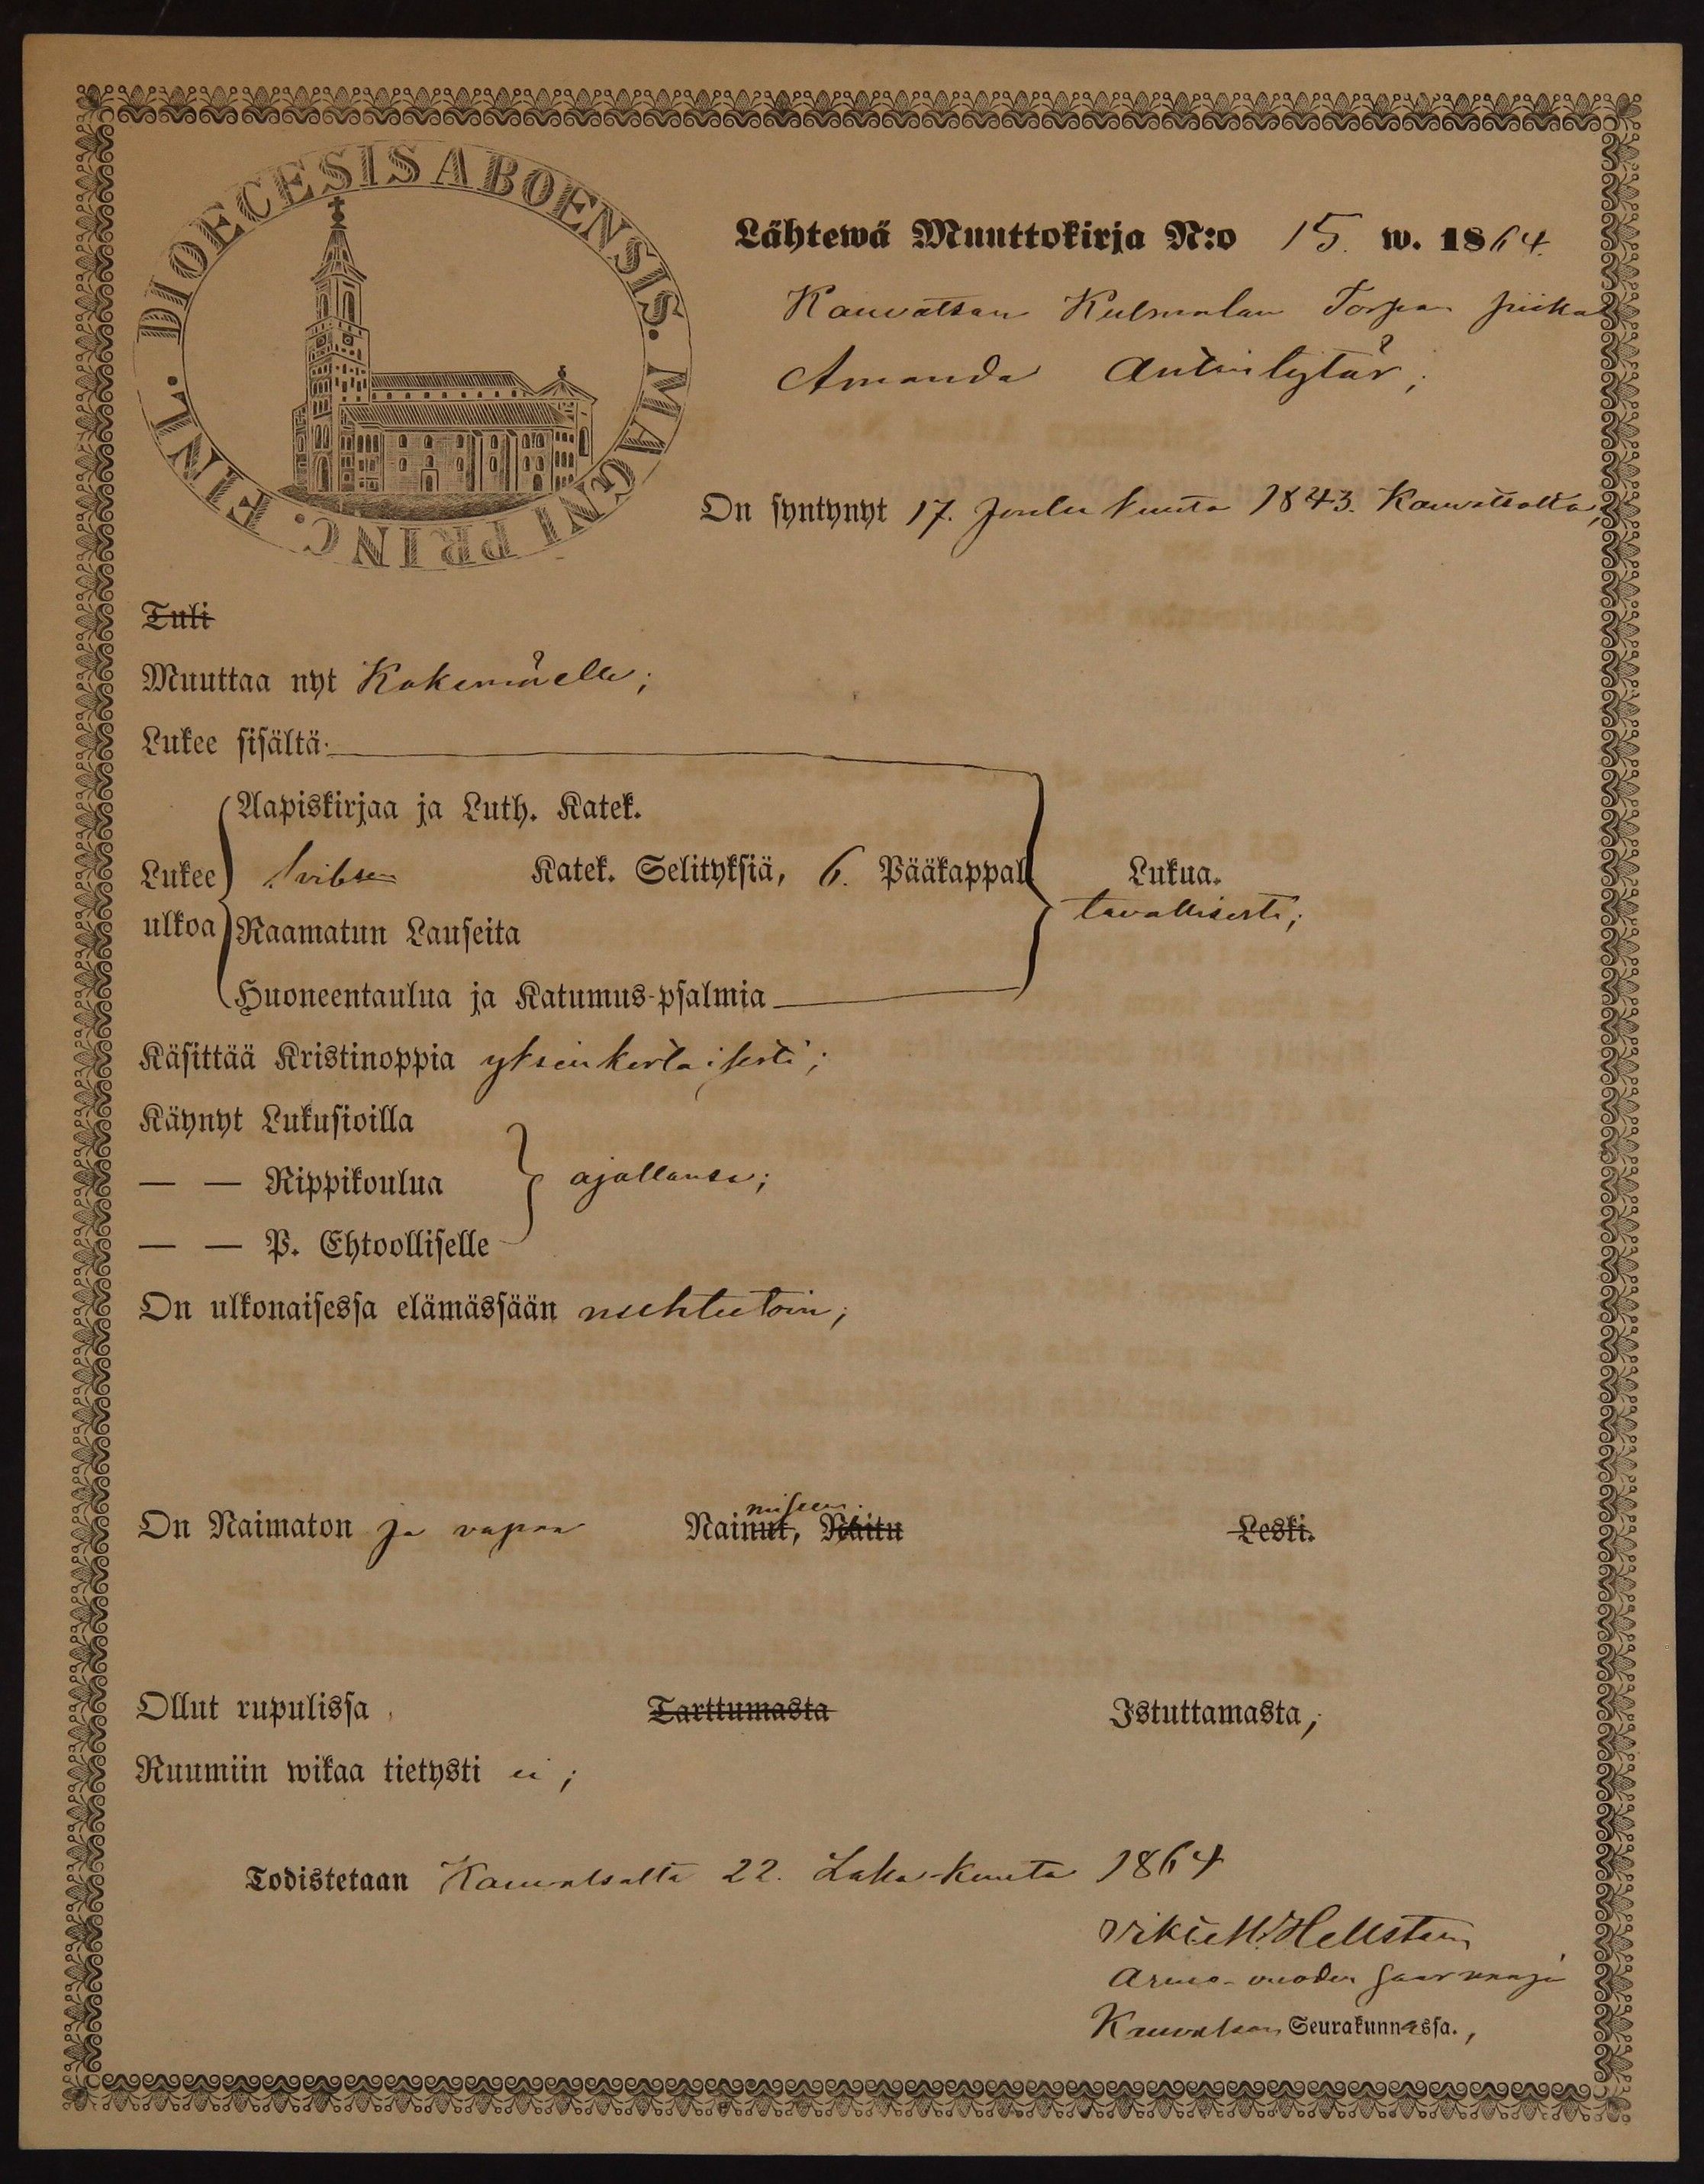 DIOECESIS ABOENSIS. MAGNI PRINC. FINL.
Lähtewä Muuttokirja N:o 15. w. 1864.
Kauvatsan Kulmalan Torpan piika
Amanda Antintytär;
On syntynyt 17. Joulu kuuta 1843. Kauvatsalla,
Tuli
Muuttaa nyt Kokemäelle;
Lukee sisältä
Aapiskirjaa ja Luth. Katek.
Lukee Svibsen Katek. Selityksiä, 6. Pääkappal Lukua.
tavallisesti;
ulkoa Raamatun Lauseita
Huoneentaulua ja Katumus-psalmia
Käsittää Kristinoppia yksinkertaisesti;
Käynyt Lukusioilla
— — Rippikoulua ajallansa;
— — P. Ehtoolliselle
On ulkonaisessa elämässään nuhteetoin;
On Naimaton ja vapaa Nainut, miseen. Naitu Leski.
Ollut rupulissa Tarttumasta Istuttamasta,
Ruumiin wikaa tietysti ei;
Todistetaan Kauvatsalla 22. Loka-kuuta 1864
Hellsten
Armo-vuoden Saarnaaja
Kauvatsan Seurakunnassa.,